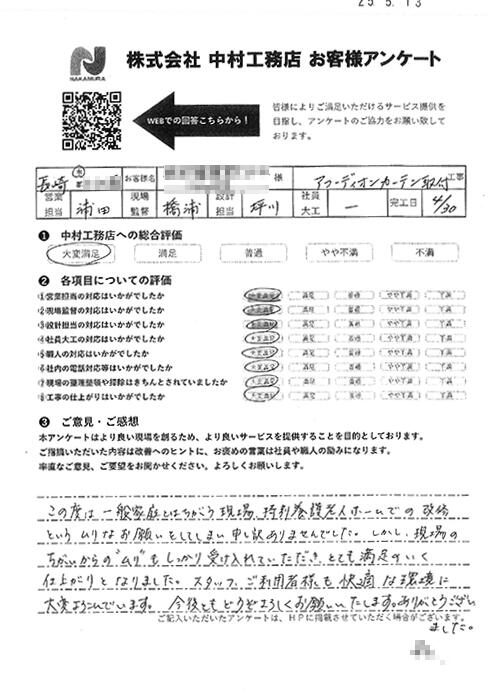 25.5.13
NAKAMURA
株式会社 中村工務店 お客様アンケート
WEBでの回答こちらから！
皆様によりご満足いただけるサービス提供を
目指し、アンケートのご協力をお願い致して
おります。
長崎 市 お客様名 様 アコーディオンカーテン取付 工事
営業担当 浦田 現場監督 橋浦 設計担当 坪川 社員大工 ― 完工日 4/30
❶ 中村工務店への総合評価
大変満足 満足 普通 やや不満 不満
❷ 各項目についての評価
①営業担当の対応はいかがでしたか 大変満足 満足 普通 やや不満 不満
②現場監督の対応はいかがでしたか 大変満足 満足 普通 やや不満 不満
③設計担当の対応はいかがでしたか 大変満足 満足 普通 やや不満 不満
④社員大工の対応はいかがでしたか 大変満足 満足 普通 やや不満 不満
⑤職人の対応はいかがでしたか 大変満足 満足 普通 やや不満 不満
⑥社内の電話対応等はいかがでしたか 大変満足 満足 普通 やや不満 不満
⑦現場の整理整頓や掃除はきちんとされていましたか 大変満足 満足 普通 やや不満 不満
⑧工事の仕上がりはいかがでしたか 大変満足 満足 普通 やや不満 不満
❸ ご意見・ご感想
本アンケートはより良い現場を創るため、より良いサービスを提供することを目的としております。
ご指摘いただいた内容は改善へのヒントに、お褒めの言葉は社員や職人の励みになります。
率直なご意見、ご要望をお聞かせください。よろしくお願いします。
この度は一般家庭とはちがう現場、特別養護老人ホームでの改修
というムリなお願いをしてしまい申し訳ありませんでした。しかし、現場の
ちがいからの"ムリ"もしっかり受け入れていただき、とても満足のいく
仕上がりとなりました。スタッフ、ご利用者様も快適な環境に
大変よろこんでいます。今後ともどうぞよろしくお願いいたします。ありがとうござい
ました。
ご記入いただいたアンケートは、HPに掲載させていただく場合がございます。